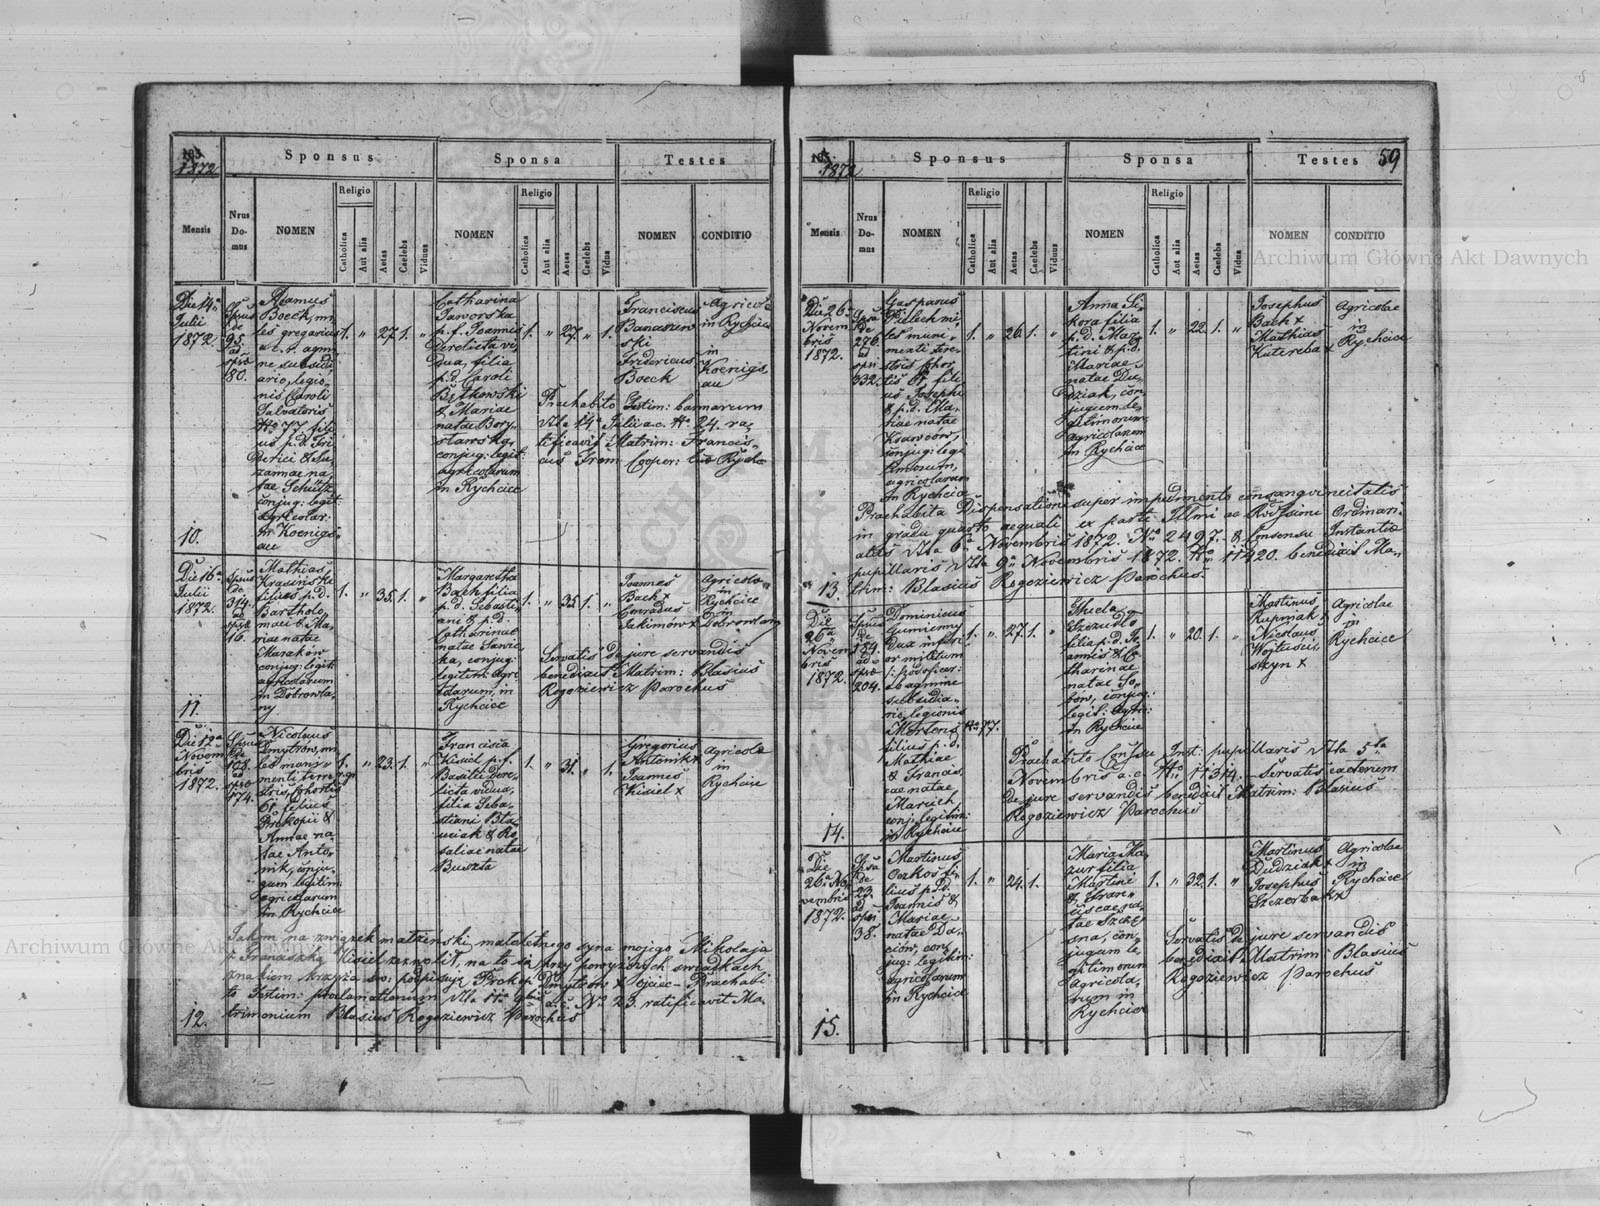 1872
Sponsus
Sponsa
Testes
Mensis
Nrus
Do-
mus
NOMEN
Religio
Catholica
Aut alia
Aetas
Caelebs
Viduus
NOMEN
Religio
Catholica
Aut alia
Aetas
Caelebs
Vidua
NOMEN
CONDITIO
Die 14a
Julii
1872.
95.
ad
80.
10.
Boeck, mi
les gregarius
ne subsidi
ario, legio
nis Caroli
Salvatoris
No 77 fili
us p.d. Fri
derici & Su
zannae na
tae Schütz
conjug: legit:
agricolar:
in Koenigs
au
1. " 27. 1. "
Catharina
Jaworska
p.f. Joannis
derelicta vi
dua, filia
p.d. Caroli
Bętkowski
& Mariae
natae Bory
sławska,
conjug: legit:
agricolarum
in Rychcice
1. " 27. " 1.
Franciscus
Banaszew
ski
Fridericus
Boeck
Agricola
in Rychcice
in
Koenigs
au
Praehabito Testim: bannorum
dtto 14a Julii a.c. No 24. ra
tificavit Matrim: Francis
cus From Cooper:
Die 16a
Julii
1872.
314.
ad
16.
11.
Mathias
Krasiński
filius p.d.
Bartholo
maei & Ma
riae natae
Maraków
conjug: legit:
agricolarum
in Dobrowla
ny
1. " 35. 1. "
Margaretha
Bach filia
p.d. Sebasti
ani & p.d.
Catharinae
natae Sawic
ka, conjug:
legitim: Agri
colarum, in
Rychcice
1. " 35. 1. "
Joannes
Bach x
Conradus
Jakimów x
Agricola
in
Rychcice
in
Dobrowlany
Servatis de jure servandis
benedixit Matrim: Blasius
Rogoziewicz Parochus
Die 12a
Novem
bris
1872.
ad
174.
12.
Nicolaus
Dmytrow, mi
les muni
menti terre
stris, Cohortis
61 filius
Prokopii &
Annae na
tae Anto
nik, conju
gum legitim:
agricolarum
in Rychcice
1. " 23. 1. "
Francisca
Kisiel p.f.
Basilii dere
licta vidua,
filia Seba
stiani Bła
uciak & Ro
saliae natae
Buszta
1. " 31. " 1.
Gregorius
Antonik x
Joannes
Kisiel x
Agricolae
in
Rychcice
Jakom na związek małżeński małoletniego syna mojego Mikołaja
z Franciszką Kisiel zezwolił, na to się przy powyższych świadkach
znakiem krzyża św: podpisuję Prokop Dmytrow x Ojciec – Praehabi
to Testim: proclamationum dtto 11a 9bris a.c. No 23. ratificavit Ma
trimonium Blasius Rogoziewicz Parochus
1872
59
Sponsus
Sponsa
Testes
Mensis
Nrus
Do-
mus
NOMEN
Religio
Catholica
Aut alia
Aetas
Caelebs
Viduus
NOMEN
Religio
Catholica
Aut alia
Aetas
Caelebs
Vidua
NOMEN
CONDITIO
Die 26a
Novem
bris
1872.
276.
ad
332.
13.
Gasparus
Pillech mi
les muni
menti terre
stris Cohor
tis 61, fili
us Josephi
& p.d. Ma
riae natae
Krawców,
conjug: legi
timorum,
agricolarum
in Rychcice
1. " 26. 1. "
Anna Si
kora filia
p.d. Mar
tini & p.d.
Mariae
natae Du
dziak, con
jugum le
gitimorum
agricolarum
in Rychcice
1. " 22. 1. "
Josephus
Bach x
Mathias
Kutereba x
Agricolae
in
Rychcice
Praehabita Dispensatione super impedimento consangvineitatis
in gradu quarto aequali ex parte Illmi ac Rvdssimi Ordinari
atus dtto 6a Novembris 1872. No 2497. & Consensu Instantiae
pupillaris dtto 9a Novembris 1872. No 11420. benedixit Ma
trim: Blasius Rogoziewicz Parochus.
Die
26a
Novem
bris
1872.
184.
ad
204.
14.
Dominicus
Gumienny
Dux inferi
or militum
ab agmine
subsidia
rio, legionis
No 77.
filius p.d.
Mathiae
& Francis
cae natae
conj: legitim:
in Rychcice
1. " 27. 1. "
Thecla
Szczudło
filia p.d. Jo
annis & Ca
tharinae
natae So
bów, conjug:
legit: Agric:
in Rychcice
1. " 20. 1. "
Martinus
Kupniak
Nicolaus
Wojtuści
szyn x
Agricolae
in
Rychcice
Praehabito Consensu Inst: pupillaris dtto 5ta
Novembris a.c. No 11314 – Servatis caeterum
de jure servandis benedixit Matrim: Blasius
Rogoziewicz Parochus
Die
26a No
vembris
1872.
23.
ad
38.
15.
Martinus
Oczkoś fi
lius p.d.
Joannis &
Mariae
natae Da
ciów, con
jug: legitim:
agricolarum
in Rychcice
1. " 24. 1.
Maria Ma
zur filia
Martini
& Franci
scae na
tae Szcze
sna, con
jugum le
gitimorum
Agricola
rum in
Rychcice
1. " 32. 1. "
Martinus
Dudziak x
Josephus
Szczerba x
Agricolae
in
Rychcice
Servatis de jure servandis
benedixit Matrim: Blasius
Rogoziewicz Parochus
Archiwum Główne Akt Dawnych
Archiwum Główne Akt Dawnych